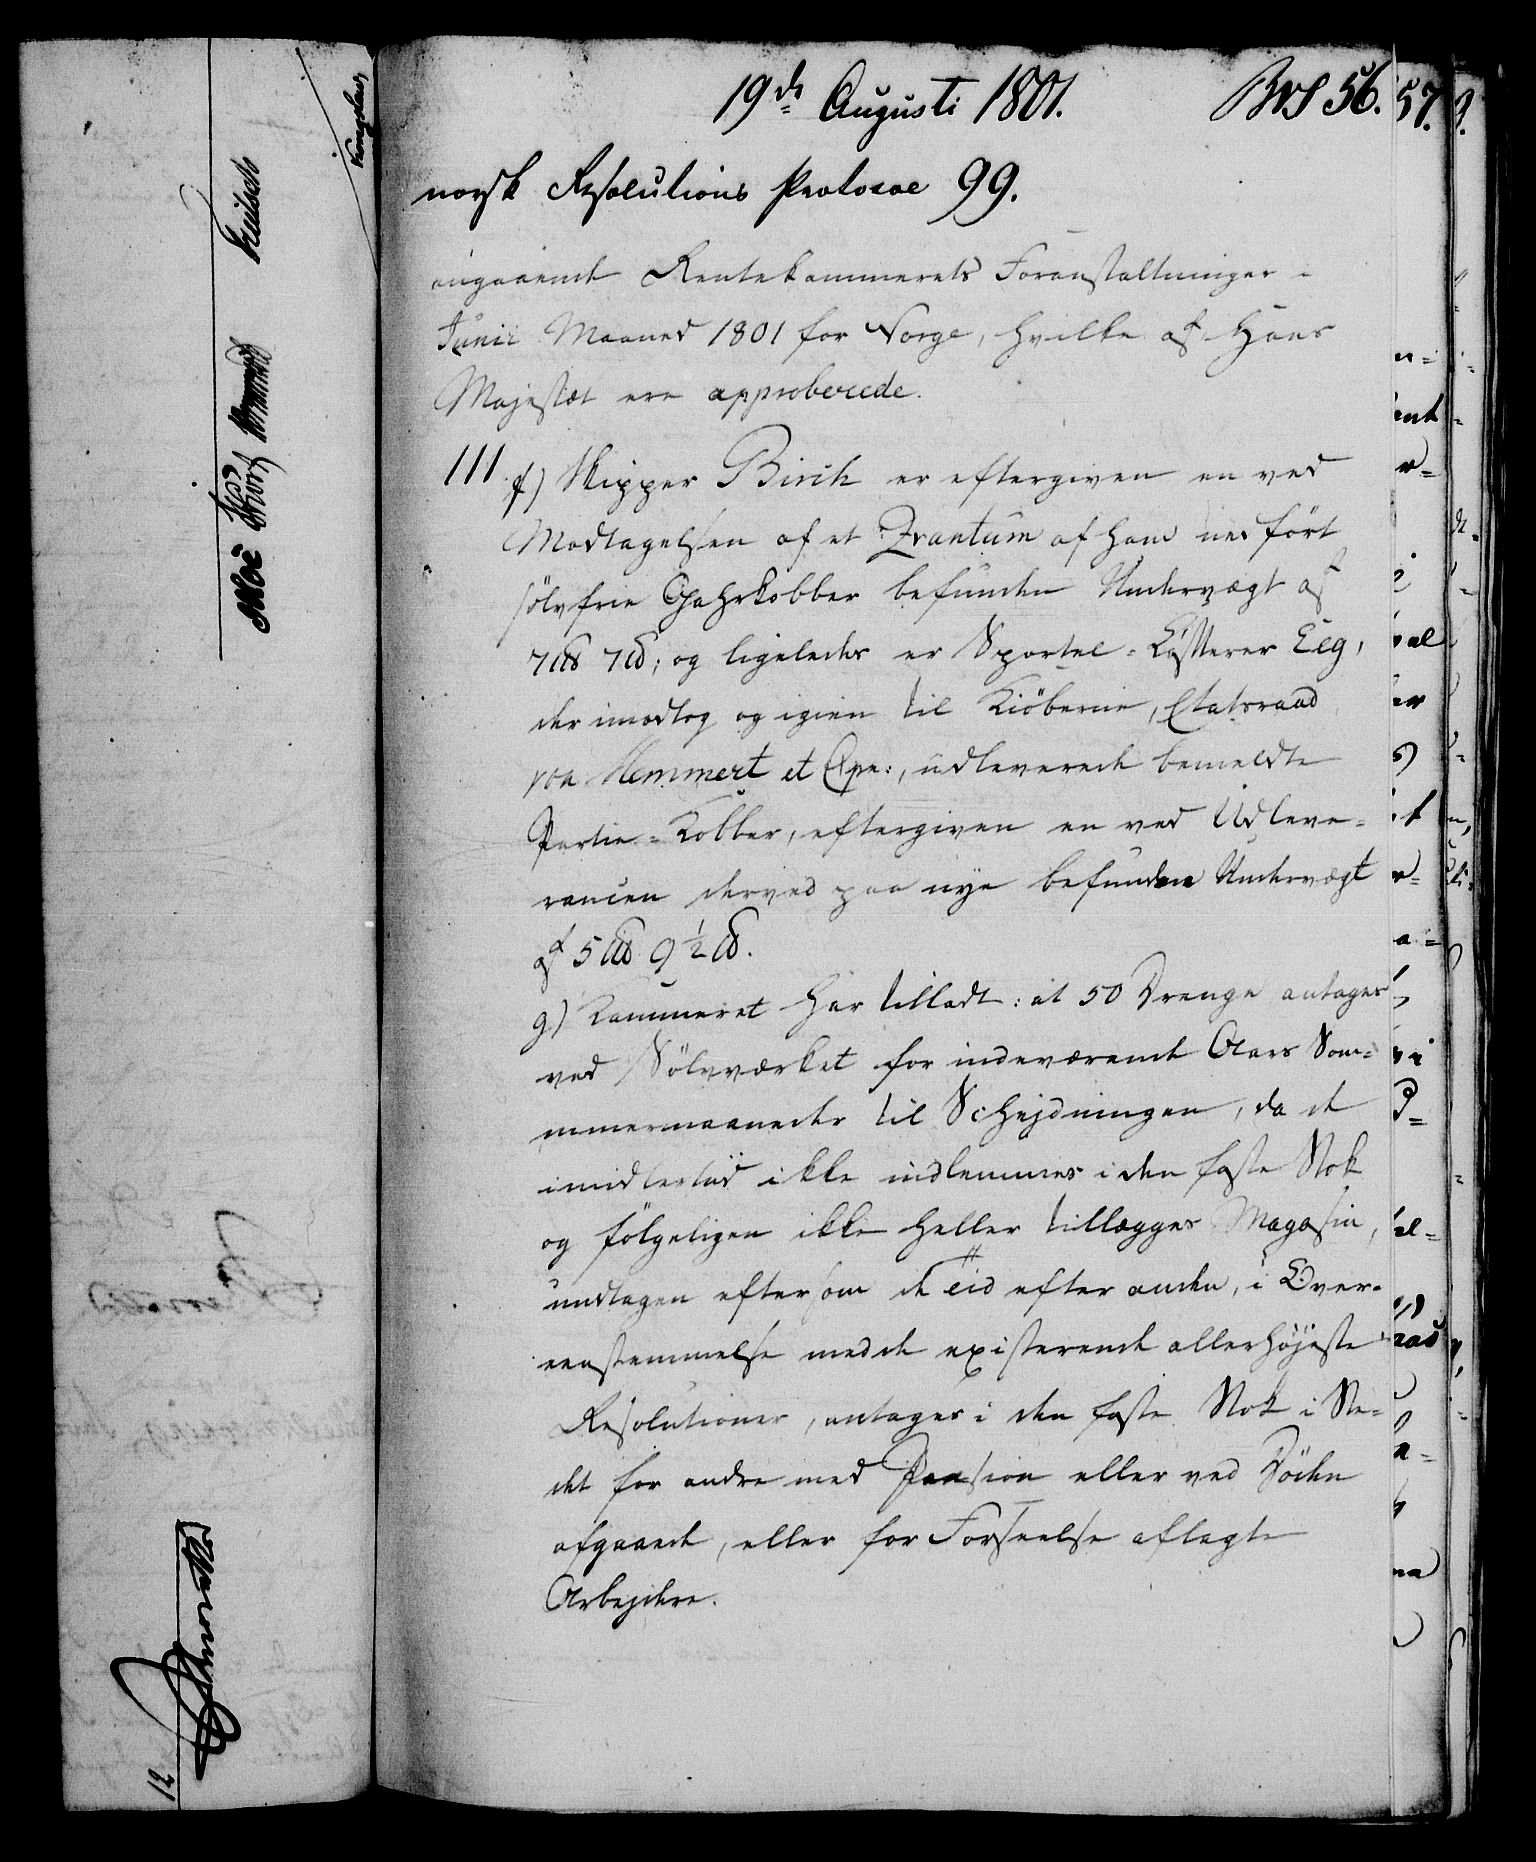 19de Augusti 1801. BrS 56.
norsk Resolutions Protocol 99.
angaaende Rentekammerets Foranstaltninger i
Junii Maaned 1801 for Norge, hvilke af Hans
Majestæt ere approberede.
111 f) Skipper Birch er eftergiven en ved
Modtagelsen af et Qvantum af ham nedført
sölvfrie Gahrkobber befunden Undervægt af
7 L℔ 7 ℔; og ligeledes er Sportel-Casserer Eeg,
der imodtog og igien til Kiöberne, Etatsraad
von Hemmert et Cpe:, udleverede bemeldte
Partie-Kobber, eftergiven en ved Udleve-
rancen derved paa nye befunden Undervægt
af 5 L℔ 9½ ℔.
g) Kammeret har tilladt: at 50 Drenge antages
ved Sölvværket for indeværende Aars Som-
mermaaneder til Schejdningen, da de
imidlertid ikke indlemmes i den faste Stok
og fölgeligen ikke heller tillægges Magasin,
undtagen eftersom de Tid efter anden, i Over-
eenstemmelse med de existerende allerhöjeste
Resolutioner, antages i den faste Stok i Ste-
det for andre med Pension eller ved Döden
afgaaede, eller for Forseelse aflagte
Arbejdere.
57.
12